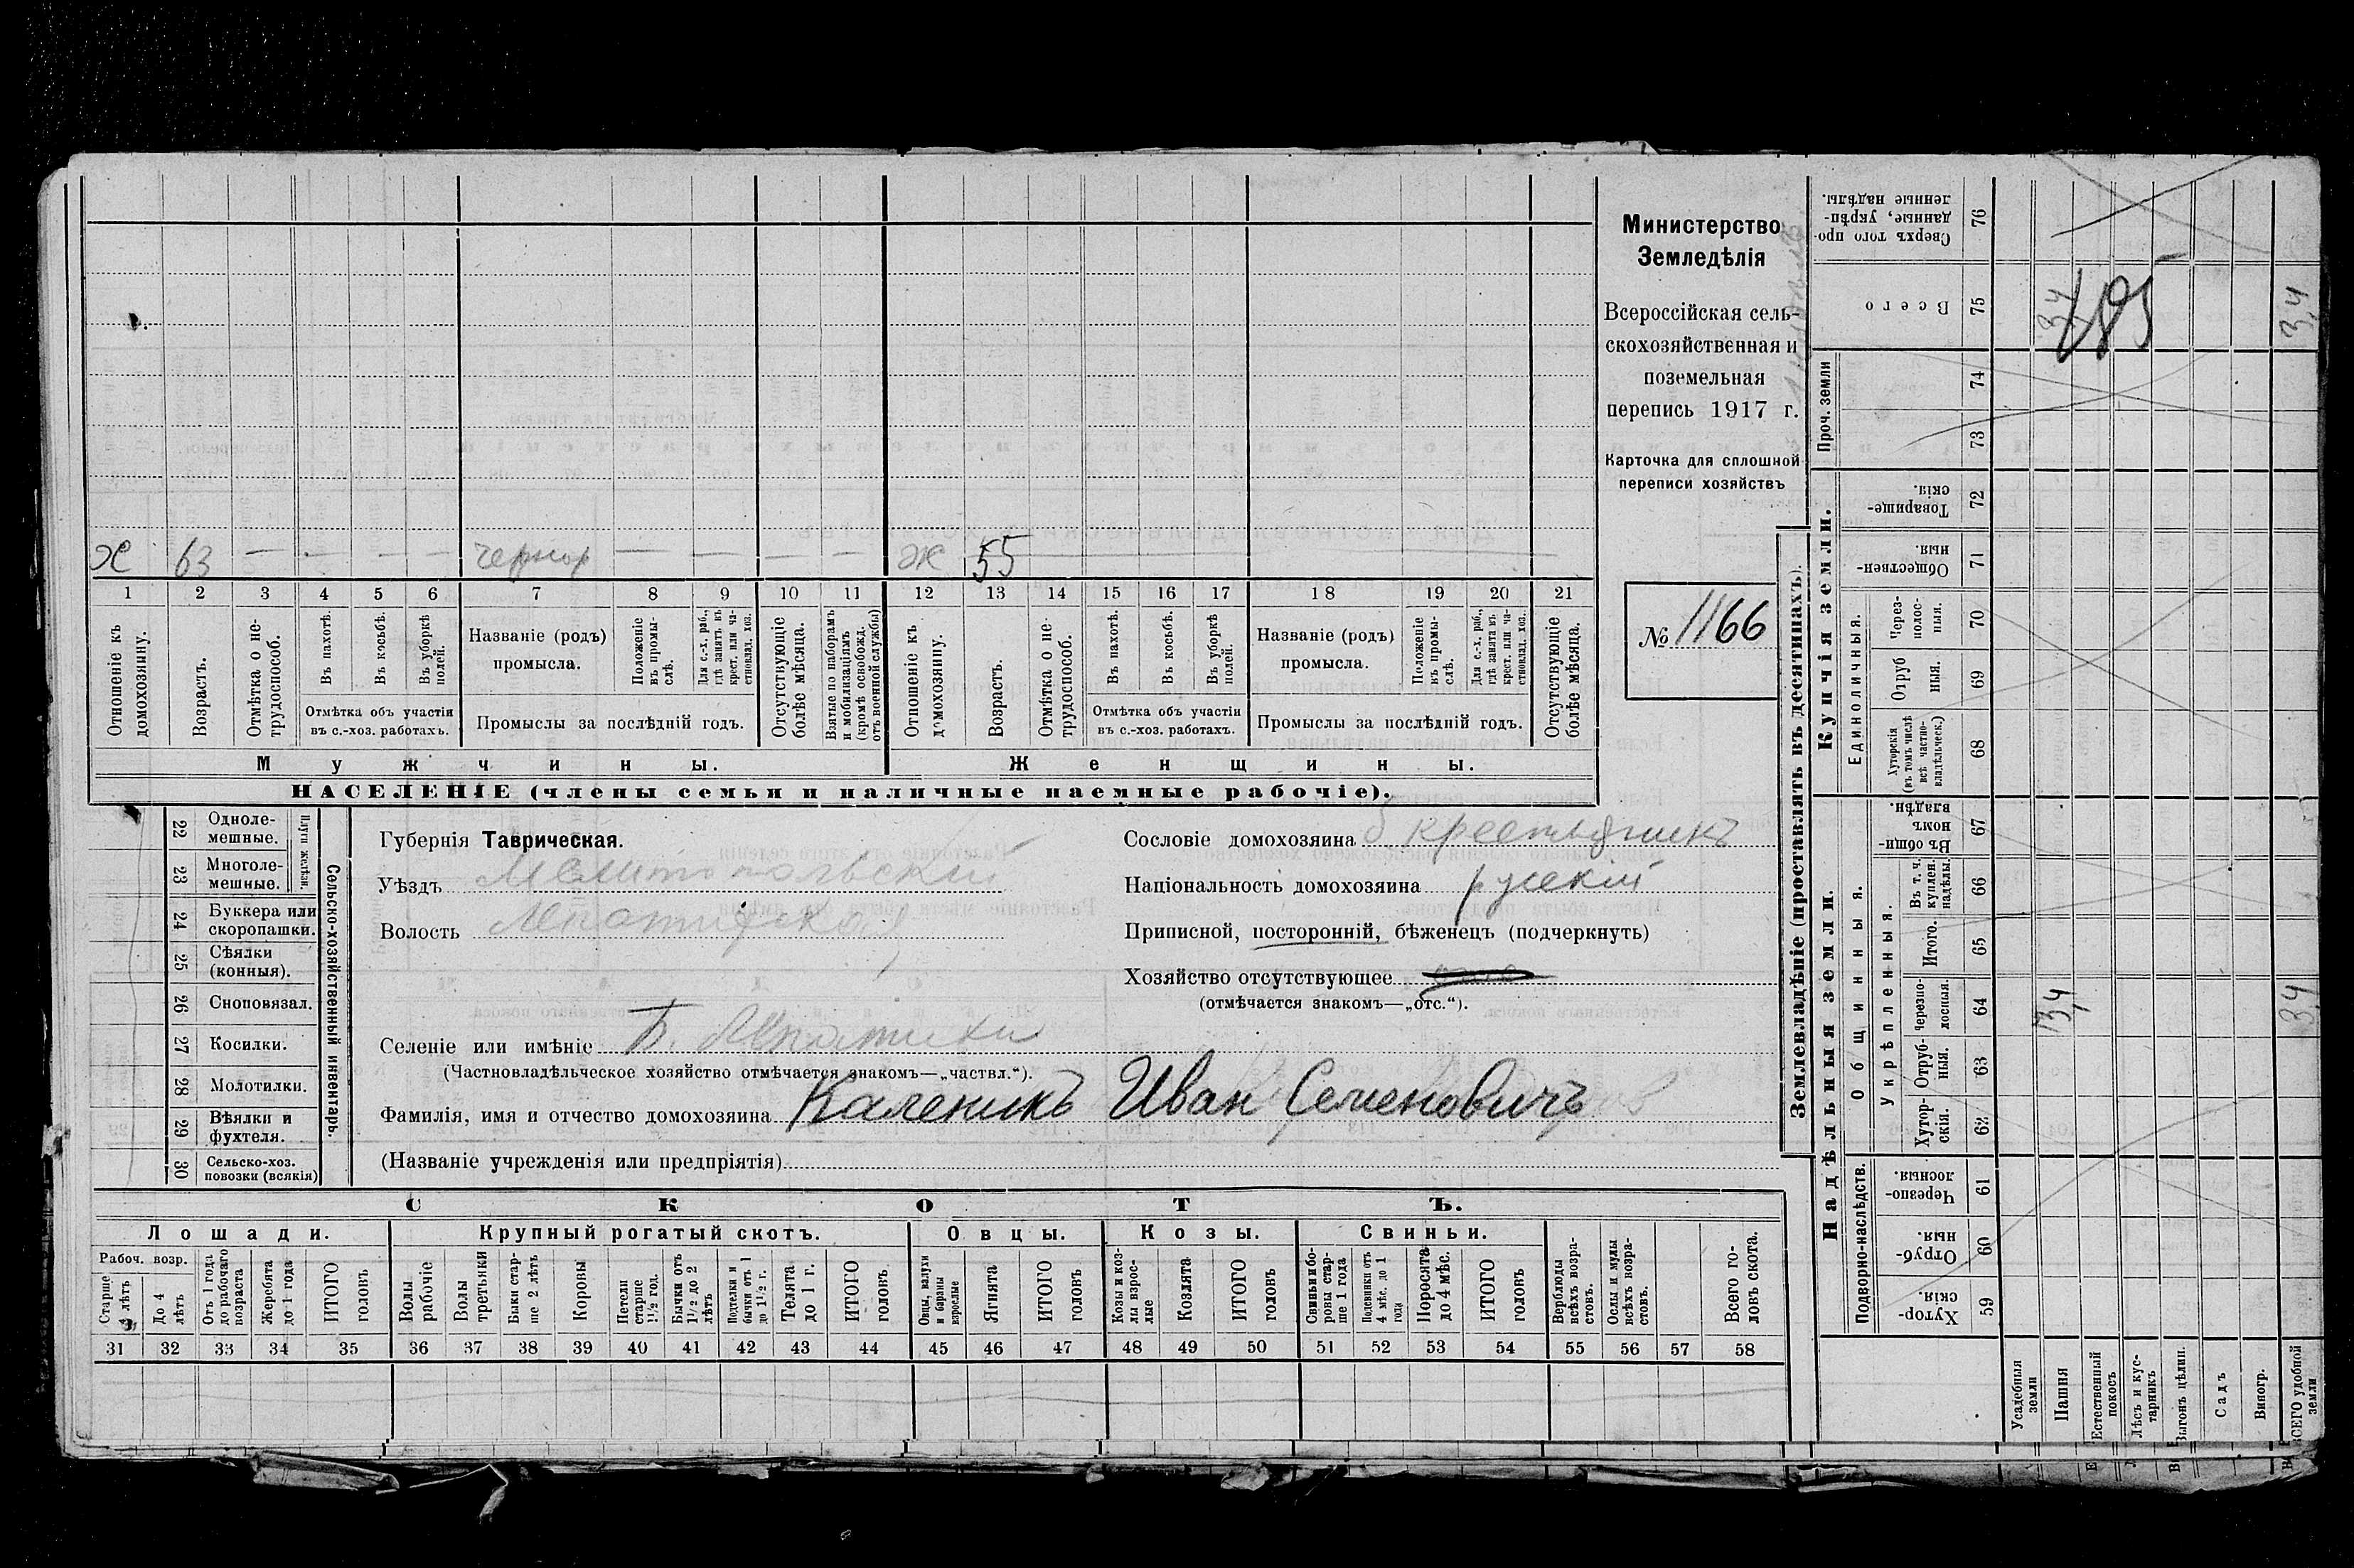 Министерство
Земледѣлія
Всероссійская сель-
скохозяйственная и
поземельная
перепись 1917 г.
Карточка для сплошной
переписи хозяйствъ
№ 1166
х 63 — — — — — — — — ж 55
1 2 3 4 5 6 7 8 9 10 11 12 13 14 15 16 17 18 19 20 21
Отношеніе къ домохозяину.
Возрастъ.
Отмѣтка о не-трудоспособ.
Въ пахотѣ.
Въ косьбѣ.
Въ уборкѣ полей.
Отмѣтка объ участіи
въ с.-хоз. работахъ.
Названіе (родъ)
промысла.
Положеніе въ промы-слѣ.
Для с.-х. раб., гдѣ занятъ въ крест. или ча-стновлад. хоз.
Промыслы за послѣдній годъ.
Отсутствующіе болѣе мѣсяца.
Взятые по наборамъ и мобилизаціямъ (кромѣ освобожд. отъ военной службы)
Отношеніе къ домохозяину.
Возрастъ.
Отмѣтка о не-трудоспособ.
Въ пахотѣ.
Въ косьбѣ.
Въ уборкѣ полей.
Отмѣтка объ участіи
въ с.-хоз. работахъ.
Названіе (родъ)
промысла.
Положеніе въ промы-слѣ.
Для с.-х. раб., гдѣ занята въ крест. или ча-стновлад. хоз.
Промыслы за послѣдній годъ.
Отсутствующіе болѣе мѣсяца.
Мужчины.
Женщины.
НАСЕЛЕНІЕ (члены семьи и наличные наемные рабочіе).
22 Однолемешные.
23 Многолемешные.
Плуги желѣзн.
24 Буккера или скоропашки.
25 Сѣялки (конныя).
26 Сноповязал.
27 Косилки.
28 Молотилки.
29 Вѣялки и фухтеля.
30 Сельско-хоз. повозки (всякія)
Сельско-хозяйственный инвентарь.
Губернія Таврическая.
Уѣздъ Мелитопольскій
Волость
Селеніе или имѣніе
(Частновладѣльческое хозяйство отмѣчается знакомъ—„частвл.“).
Фамилія, имя и отчество домохозяина Каленикъ Иван Семеновичъ
(Названіе учрежденія или предпріятія)
Сословіе домохозяина крестьянинъ
Національность домохозяина рускій
Приписной, посторонній, бѣженецъ (подчеркнуть)
Хозяйство отсутствующее
(отмѣчается знакомъ—„отс.“).
СКОТЪ.
Лошади. Крупный рогатый скотъ. Овцы. Козы. Свиньи.
Рабоч. возр.
Старше 4 лѣтъ
До 4 лѣтъ
Отъ 1 года до рабочаго возраста
Жеребята до 1 года
ИТОГО головъ
Волы рабочіе
Волы третьяки
Быки стар-ше 2 лѣтъ
Коровы
Нетели старше 1½ год.
Бычки отъ 1½ до 2 лѣтъ
Подтелки и бычки отъ 1 до 1½ г.
Телята до 1 г.
ИТОГО головъ
Овцы, валухи и бараны взрослые
Ягнята
ИТОГО головъ
Козы и коз-лы взрос-лые
Козлята
ИТОГО головъ
Свиньи и бо-ровы стар-ше 1 года
Подсвинки отъ 4 мѣс. до 1 года
Поросята до 4 мѣс.
ИТОГО головъ
Верблюды всѣхъ возра-стовъ.
Ослы и мулы всѣхъ возра-стовъ.
Всего го-ловъ скота.
31 32 33 34 35 36 37 38 39 40 41 42 43 44 45 46 47 48 49 50 51 52 53 54 55 56 57 58
Землевладѣніе (проставлять въ десятинахъ).
Надѣльныя земли.
Купчія земли.
Проч. земли
Подворно-наслѣдств.
Общинныя.
Укрѣпленныя.
Единоличныя.
Хутор-скія. 59
Отруб-ныя. 60
Черезпо-лосныя. 61
Хутор-скія. 62
Отруб-ныя. 63
Черезпо-лосныя. 64
Итого. 65
Въ т. ч. куплен. надѣлы. 66
Въ общин-номъ владѣн. 67
Хуторскія (въ томъ числѣ всѣ частно-владѣльческ.) 68
Отруб-ныя. 69
Через-полос-ныя. 70
Обществен-ныя. 71
Товарище-скія. 72
73
74
Всего 75
Сверхъ того про-данные, укрѣп-ленные надѣлы. 76
Усадебныя земли
Пашня 3,4 3,4
Естественный покосъ
Лѣсъ и кус-тарникъ
Выгонъ цѣлин.
Садъ
Виногр.
ВСЕГО удобной земли 3,4 3,4